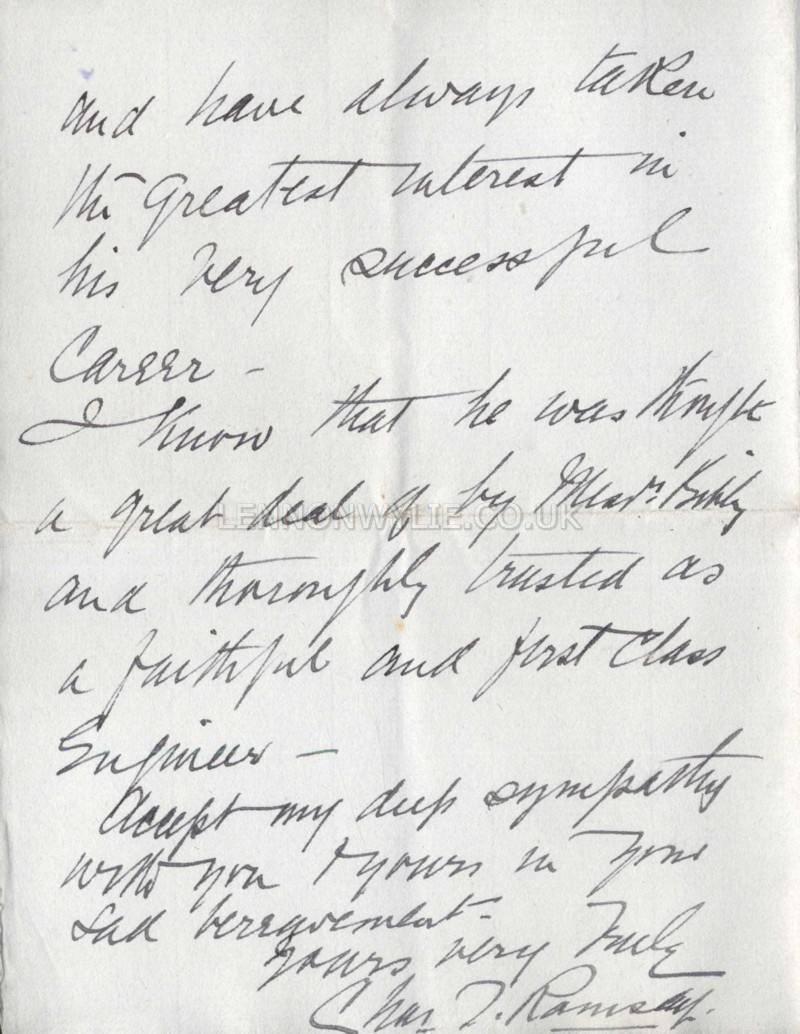 and have always taken
the Greatest interest in
his very successful
Career -
I know that he was thought
a great deal of by Messrs. Bibby
LENNONWYLIE.CO.UK
and thoroughly trusted as
a faithful and first class
Engineer -
Accept my deep sympathy
with you & yours in your
sad bereavement -
Yours very truly
Chas. J. Ramsay.